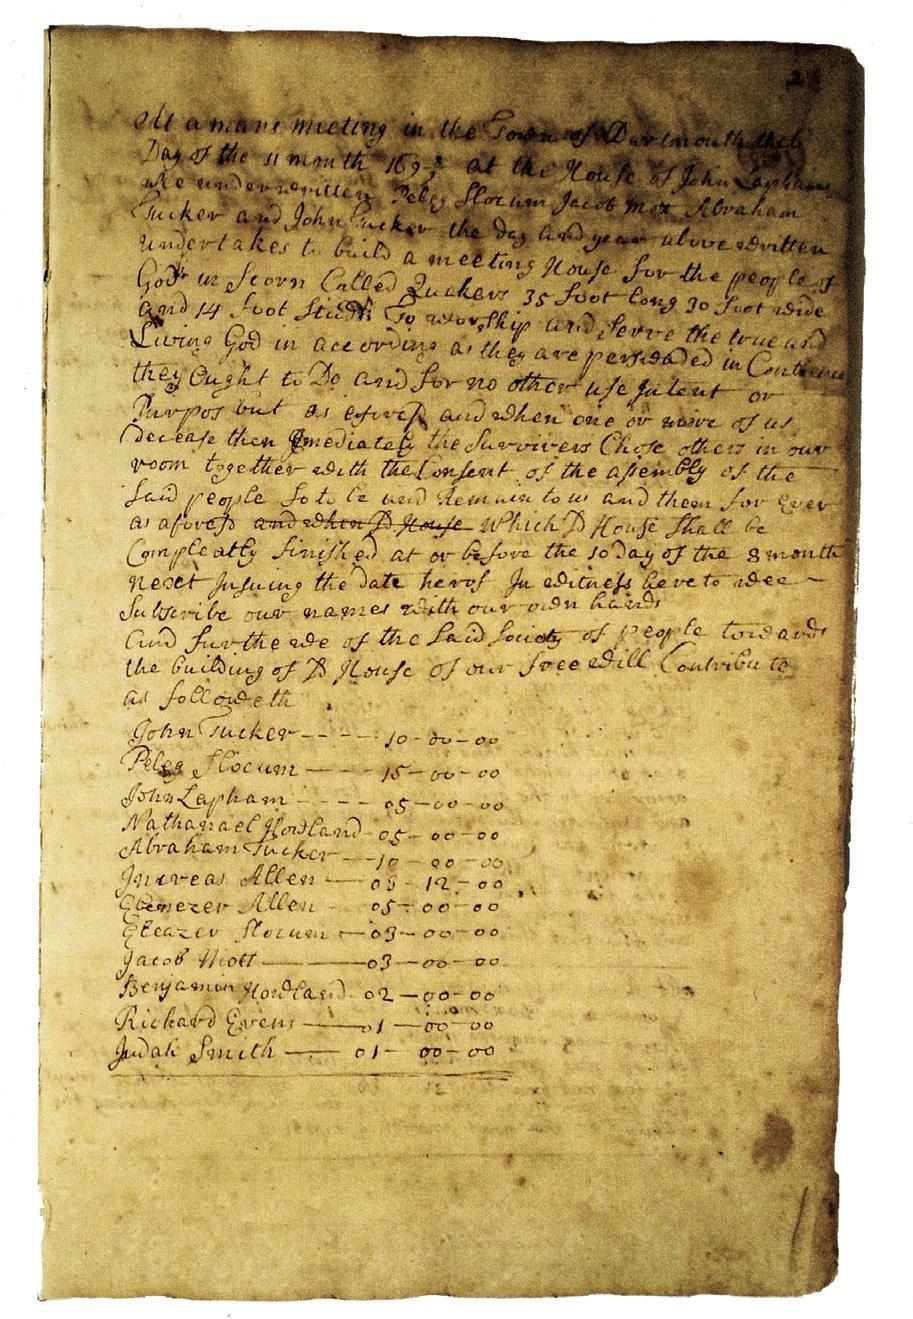 2
At a mans meeting in the Town of Dartmouth the 6
Day of the 11 month 1698 at the House of John Lapham
we underwritten Peleg Slocum Jacob Mott Abraham
Tucker and John Tucker the day and year above written
undertakes to build a meeting House for the people of
God in Scorn Called Quakers 35 foot long 30 foot wide
and 14 foot Studs To worship and Serve the true and
Living God in according as they are perswaded in Contience
they Ought to Do and for no other use Intent or
Purpos but as aforesd and when one or more of us
decease then Imediately the Survivers Chose others in our
room together with the Consent of the assembly of the
Said people So to be and Remain to us and them for Ever
as aforesd and when sd House Which sd House Shall be
Compleatly finished at or before the 10 day of the 8 month
next Insuing the date herof In witness hereto wee
Subscribe our names with our own hands
And further we of the Said Society of people towards
the building of sd House of our free will Contribute
as followeth
John Tucker - - - - 10 - 00 - 00
Peleg Slocum — — 15 - 00 - 00
John Lapham - - - - 05 - 00 - 00
Nathanael Howland - 05 - 00 - 00
Abraham Tucker - - 10 - 00 - 00
Increas Allen — 03 - 12 - 00
Ebenezer Allen - 05 - 00 - 00
Eleazer Slocum — 03 - 00 - 00
Jacob Mott — 03 - 00 - 00
Benjamin Howland 02 - 00 - 00
Richard Evens — 01 - 00 - 00
Judah Smith — 01 - 00 - 00